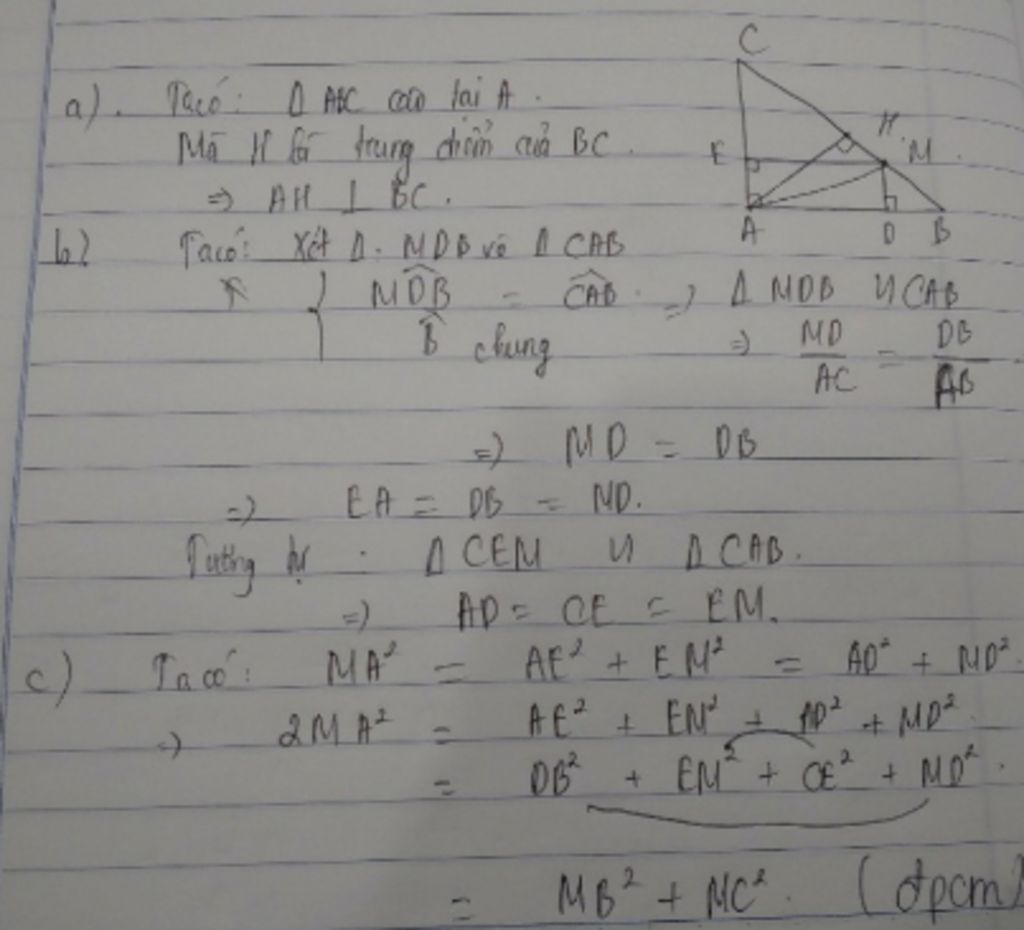 a). Ta có: Δ ABC cân tại A.
Mà H là trung điểm của BC.
⇒ AH ⊥ BC.
b) Ta có: Xét Δ. MDB và Δ CAB
{ MDB = CAB. ⇒ Δ MDB ∽ CAB
B chung ⇒ MD/AC = DB/AB
⇒ MD = DB
⇒ EA = DB = MD.
Tương tự : Δ CEM ∽ Δ CAB.
⇒ AD = CE = EM.
c) Ta có: MA² = AE² + EM² = AD² + MD².
⇒ 2MA² = AE² + EM² + AD² + MD²
= DB² + EM² + CE² + MD².
= MB² + MC². (đpcm)
C
H.
E M
A D B